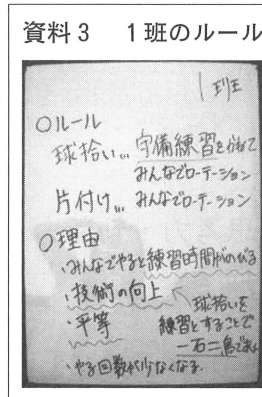 資料3 1班のルール
1班
○ルール
球拾い… 守備練習を兼ねて
みんなでローテーション
片付け… みんなでローテーション
○理由
・みんなでやると練習時間がのびる
・技術の向上 ← 球拾いを
・平等 練習とすることで
一石二鳥である
・やる回数が少なくなる.